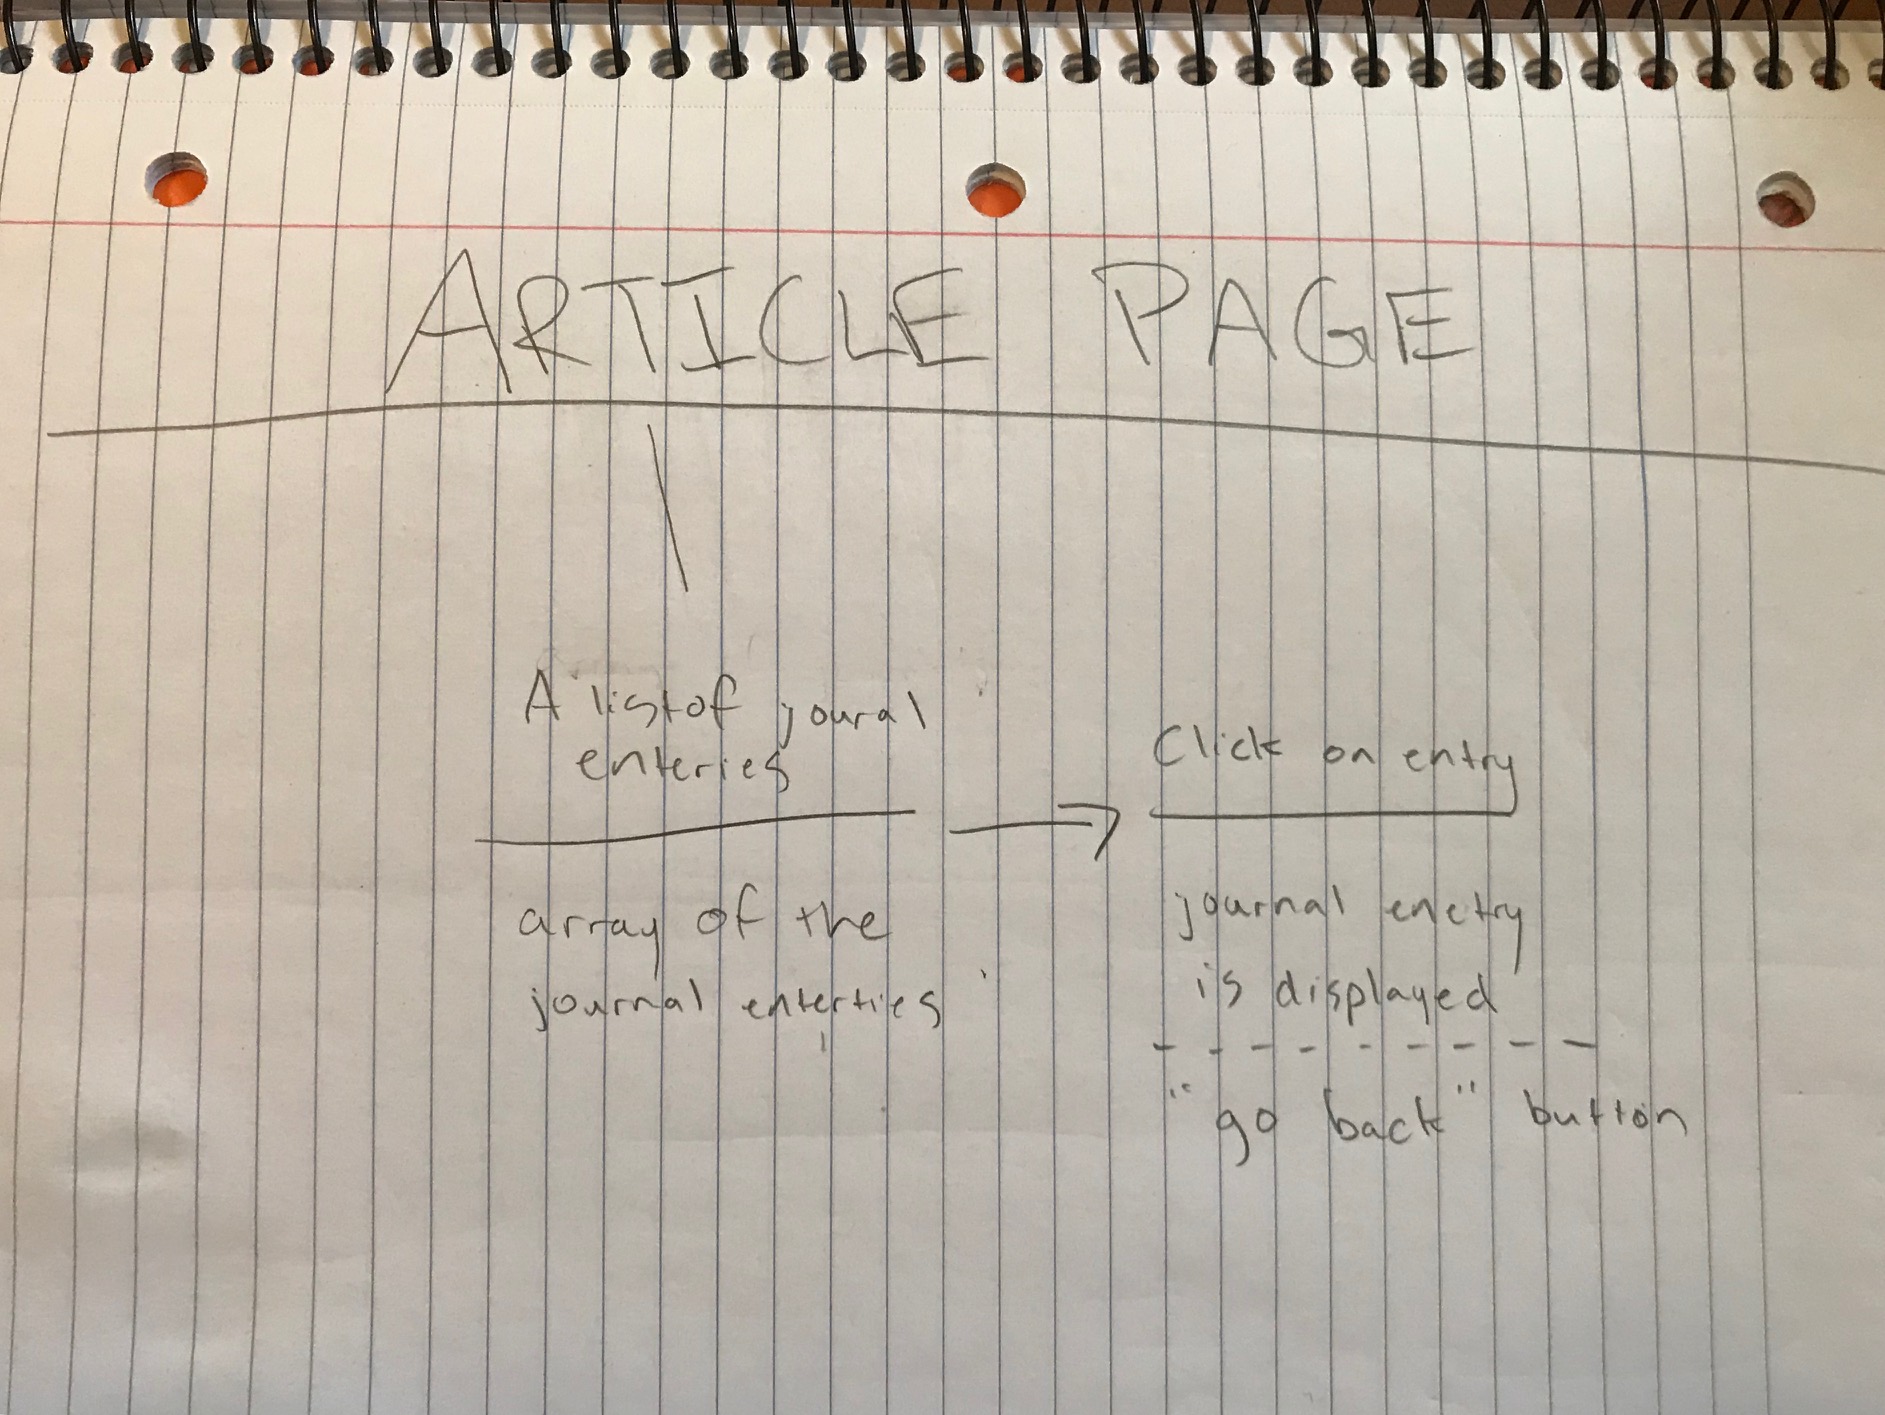 ARTICLE PAGE
A list of joural
enteries
array of the
journal enterties
Click on entry
journal enetry
is displayed
"go back" button